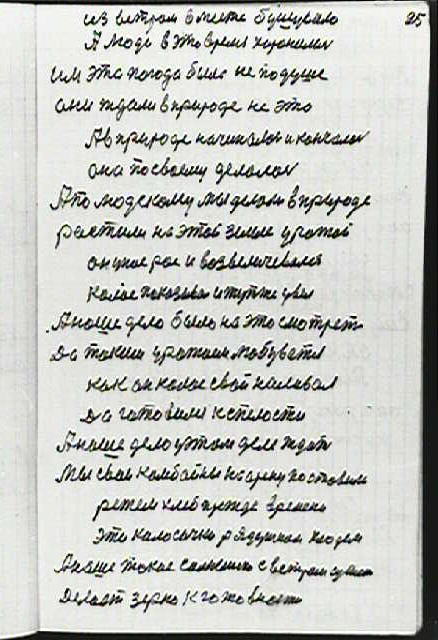 25
из ветром вместе бушувало
А люде в это время хоронилися
им эта погода была не по душе
они ждали в природе не это
А в природе начиналося и кончалося
она по своему делалася
А по людскому мы делали в природе
растили на этой земле урожай
он у нас рос и возвеличевался
колос показывал и тут же цвел
А наше дело было на это смотреть
Да таким урожаем любуватся
как он колос свой наливал
Да готовили к спелости
А наше дело у этом деле ждать
Мы свои комбайны на срезку поставили
режем хлеб прежде времени
эти колосочки радушным людям
А наше такое солнышко с ветром сушит
Делает зерно к готовности